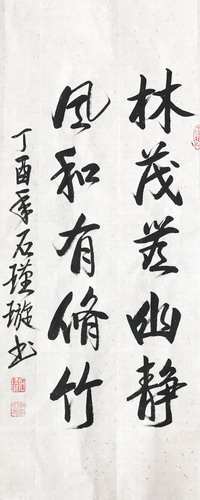 林茂幽静
风和有脩竹
丁酉年石瑾璇书